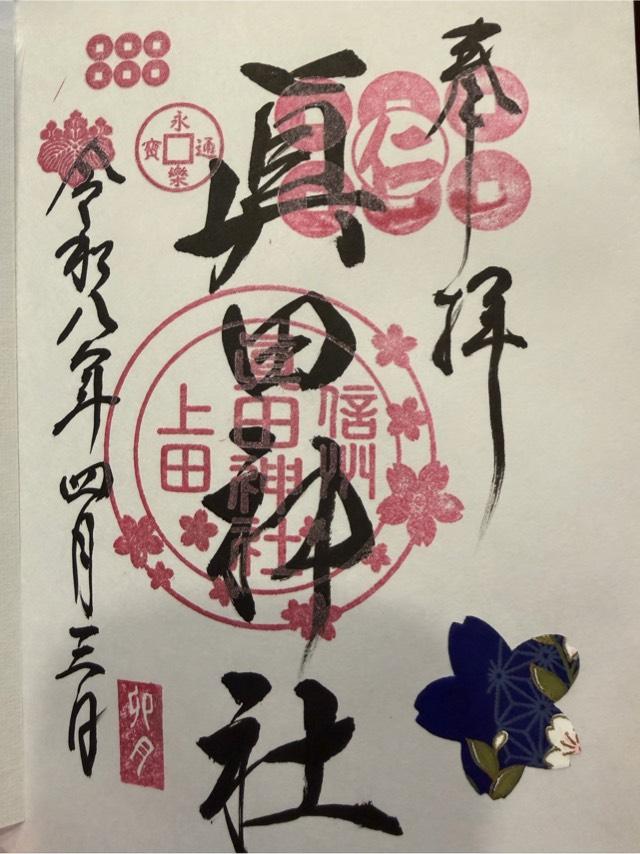 奉拝
仁
眞田神社
信州
眞田神社
上田
永樂通寳
令和八年四月三日
卯月